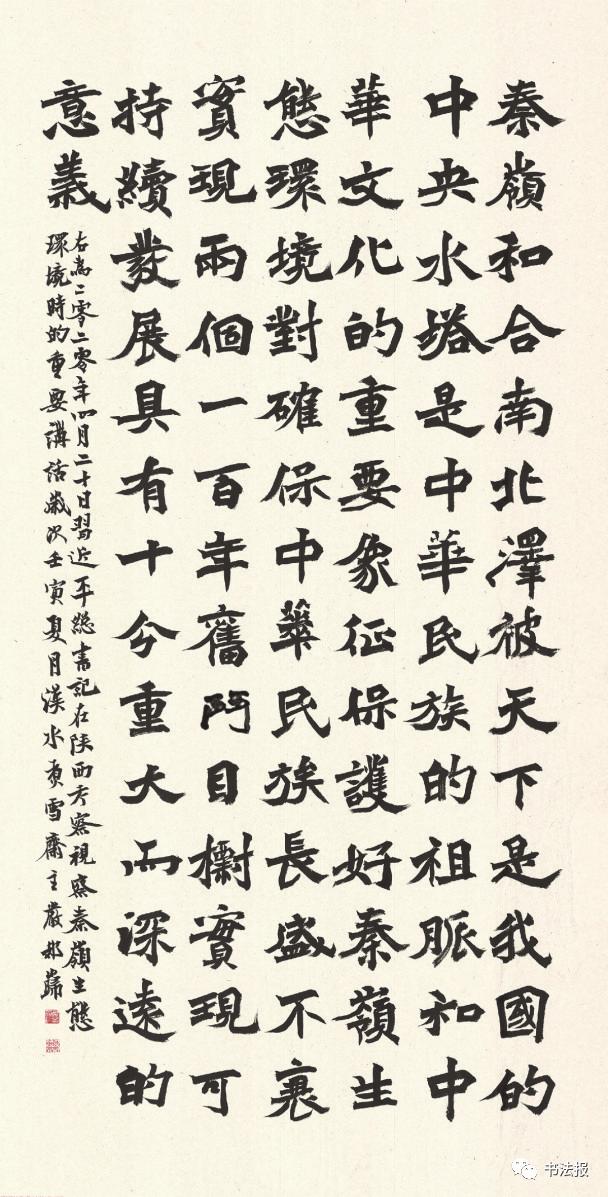 秦嶺和合南北澤被天下是我國的
中央水塔是中華民族的祖脈和中
華文化的重要象征保護好秦嶺生
態環境對確保中華民族長盛不衰
實現兩個一百年奮鬥目標實現可
持續發展具有十分重大而深遠的
意義
右爲二零二零年四月二十日習近平總書記在陝西考察視察秦嶺生態
環境時的重要講話歲次壬寅夏月漢水雪齋主嚴
书法报